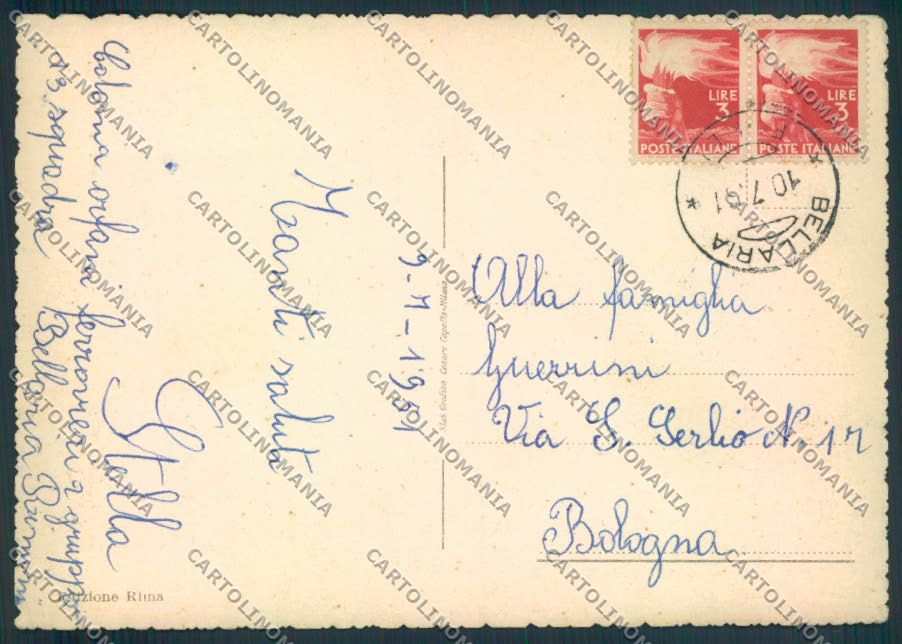 Colonia orfani ferrovieri 2 gruppo
13 squadra Bellaria Rimini
9-7-1951
Tzanti saluti
Stella
LIRE 3
POSTE ITALIANE
LIRE 3
POSTE ITALIANE
BELLARIA
10.7.51
Alla famiglia
Guerrini
Via S. Serlio N. 17
Bologna
Stab Grafico Cesare Capello-Milano
Edizione Rima
CARTOLINOMANIA